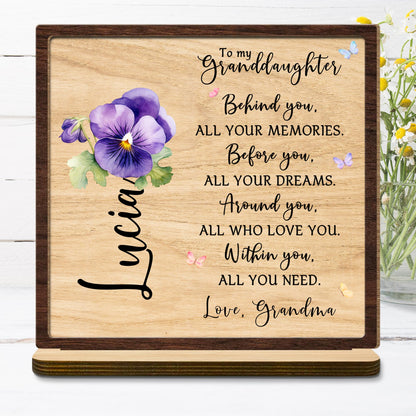 To my
Granddaughter
Behind you,
ALL YOUR MEMORIES.
Before you,
ALL YOUR DREAMS.
Around you,
ALL WHO LOVE YOU.
Within you,
ALL YOU NEED.
Love, Grandma
Lucia